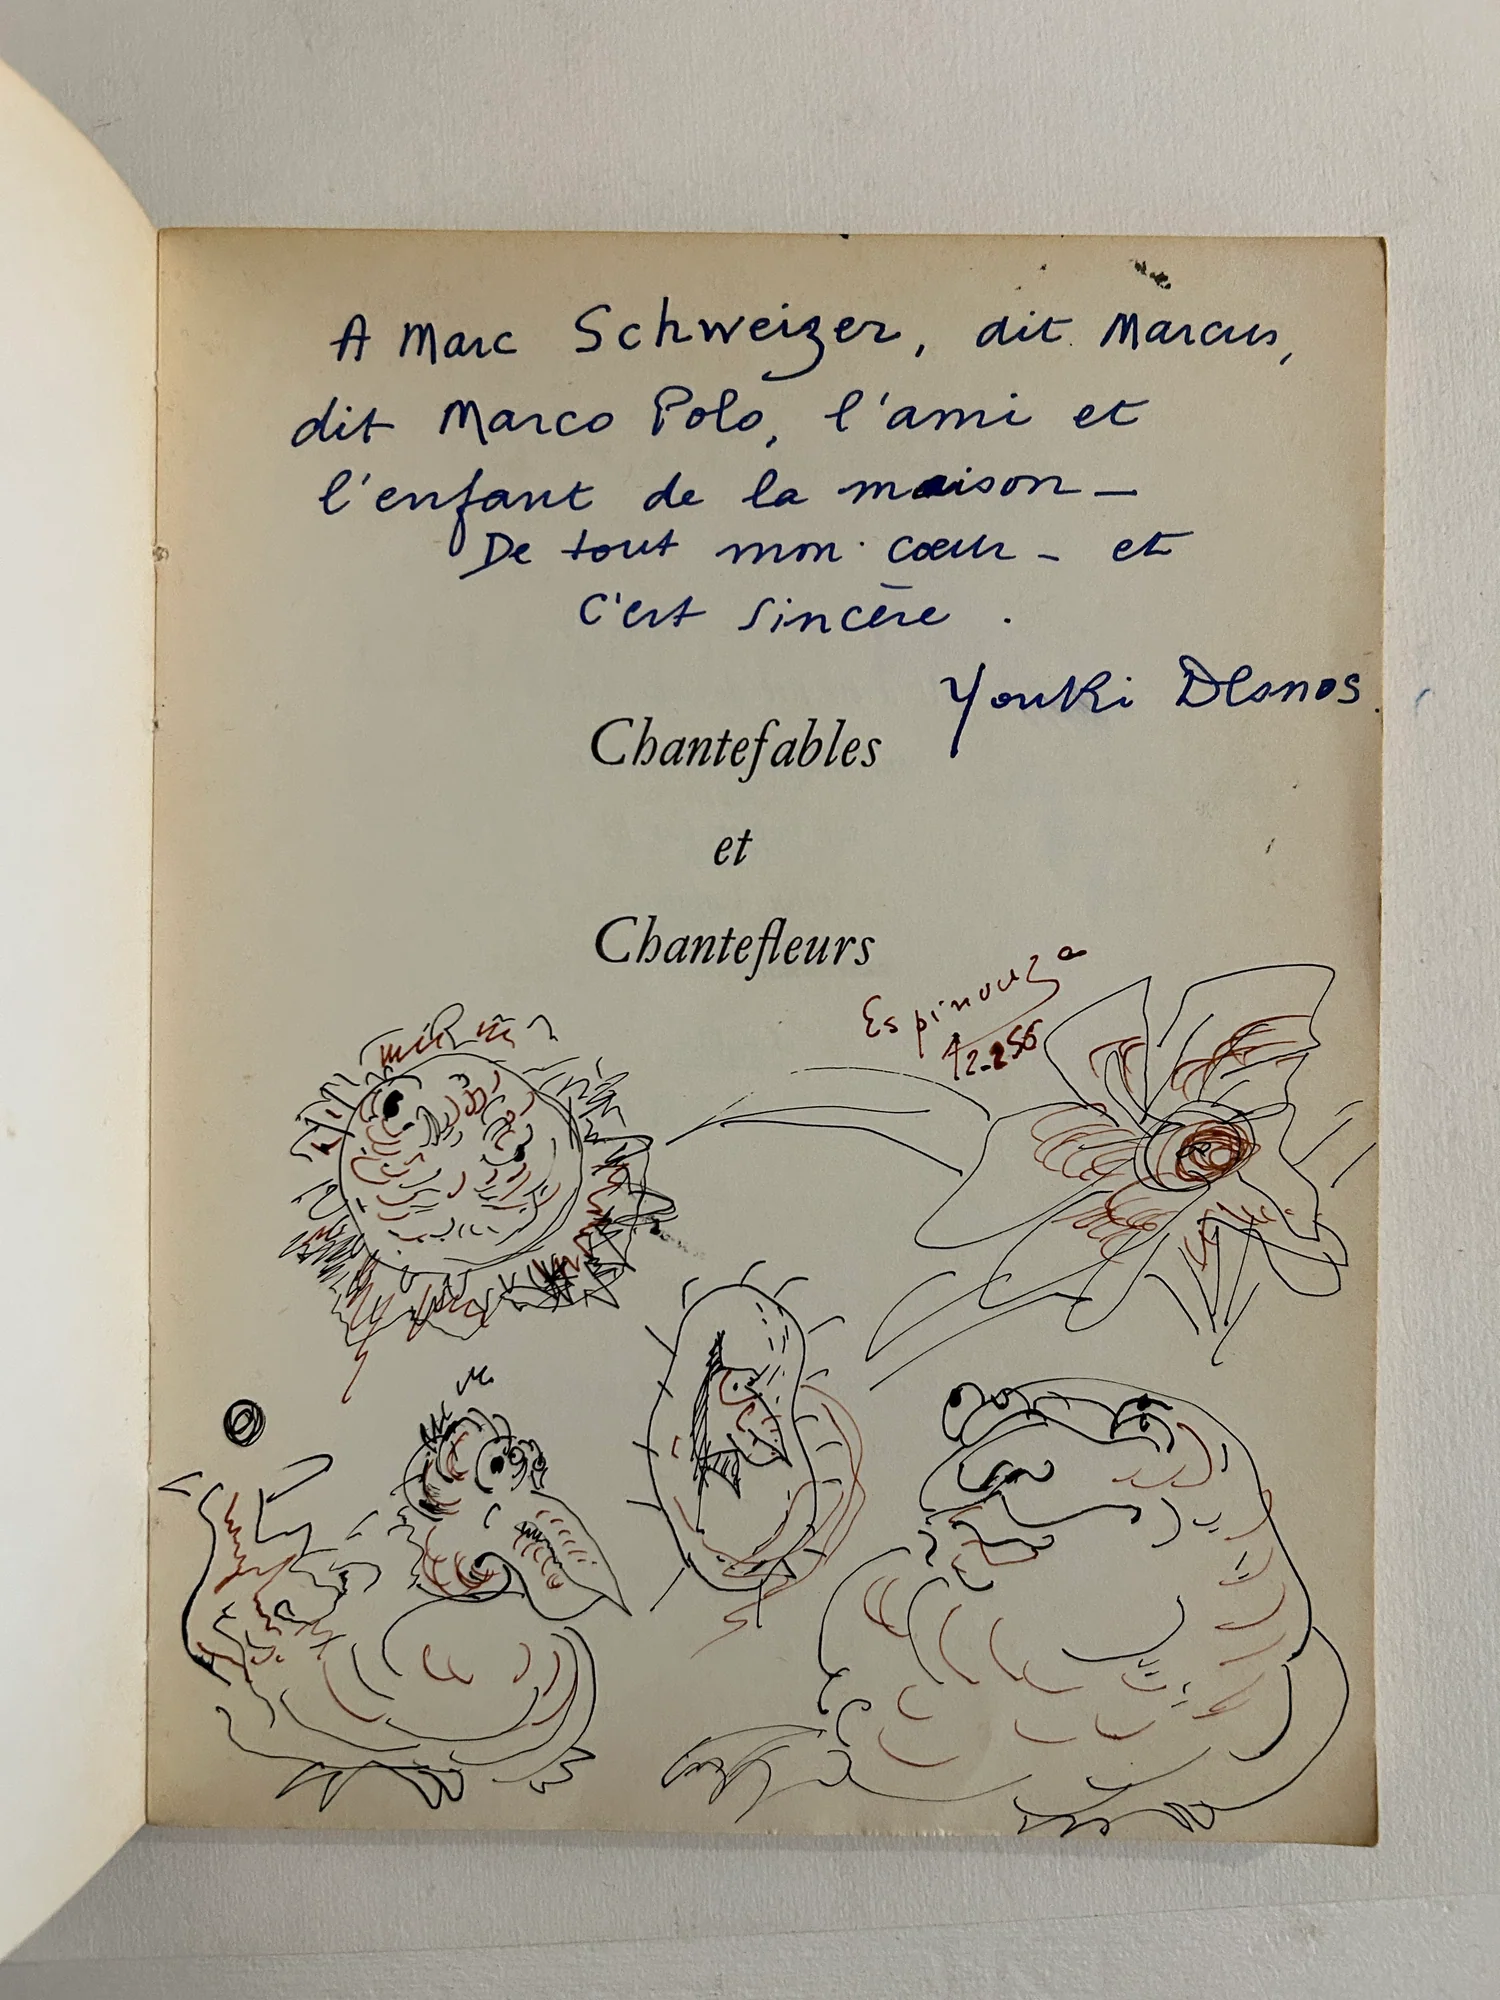 A Marc Schweizer, dit Marcus,
dit Marco Polo, l'ami et
l'enfant de la maison –
De tout mon cœur – et
c'est sincère .
Youki Desnos.
Chantefables
et
Chantefleurs
Espinouze